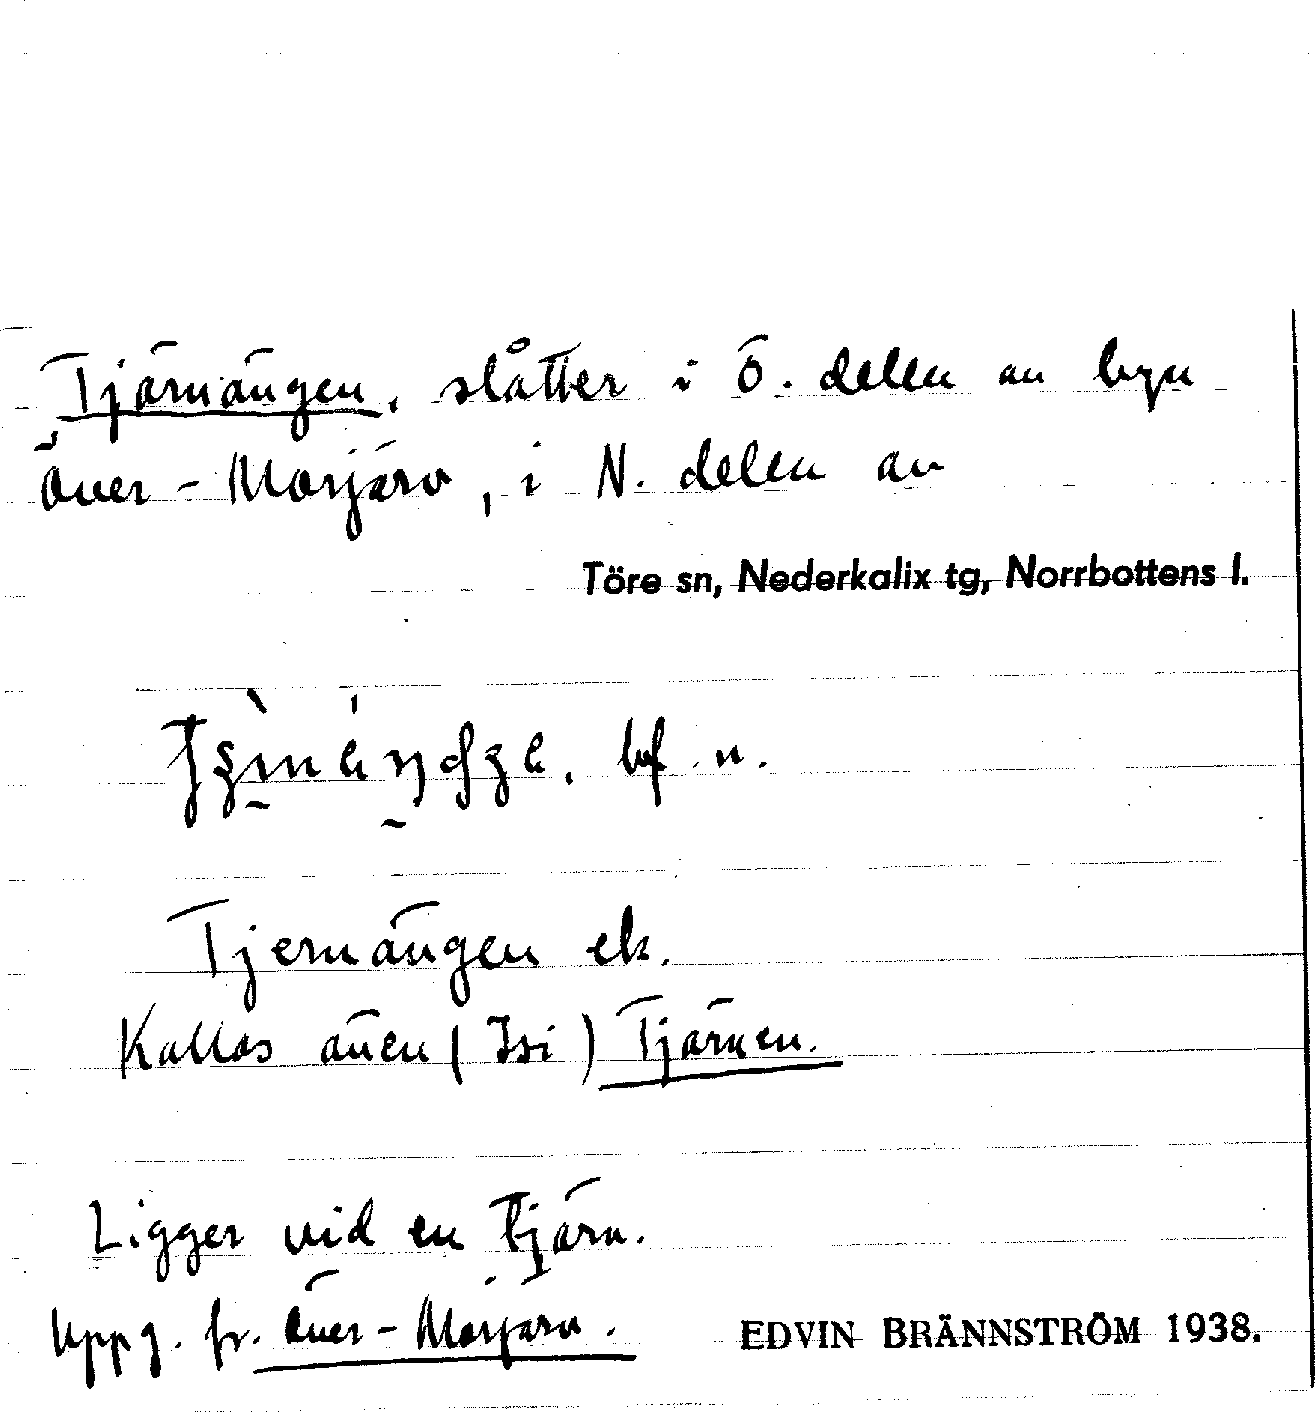 Tjärnängen, slåtter i Ö. delen av byn
Över-Morjärv, i N. delen av
Töre sn, Nederkalix tg, Norrbottens l.
bf. n.
Tjernängen ek.
Kallas även (Isi) Tjärnen.
Ligger vid en tjärn.
Uppg. fr. Över-Morjärv. EDVIN BRÄNNSTRÖM 1938.